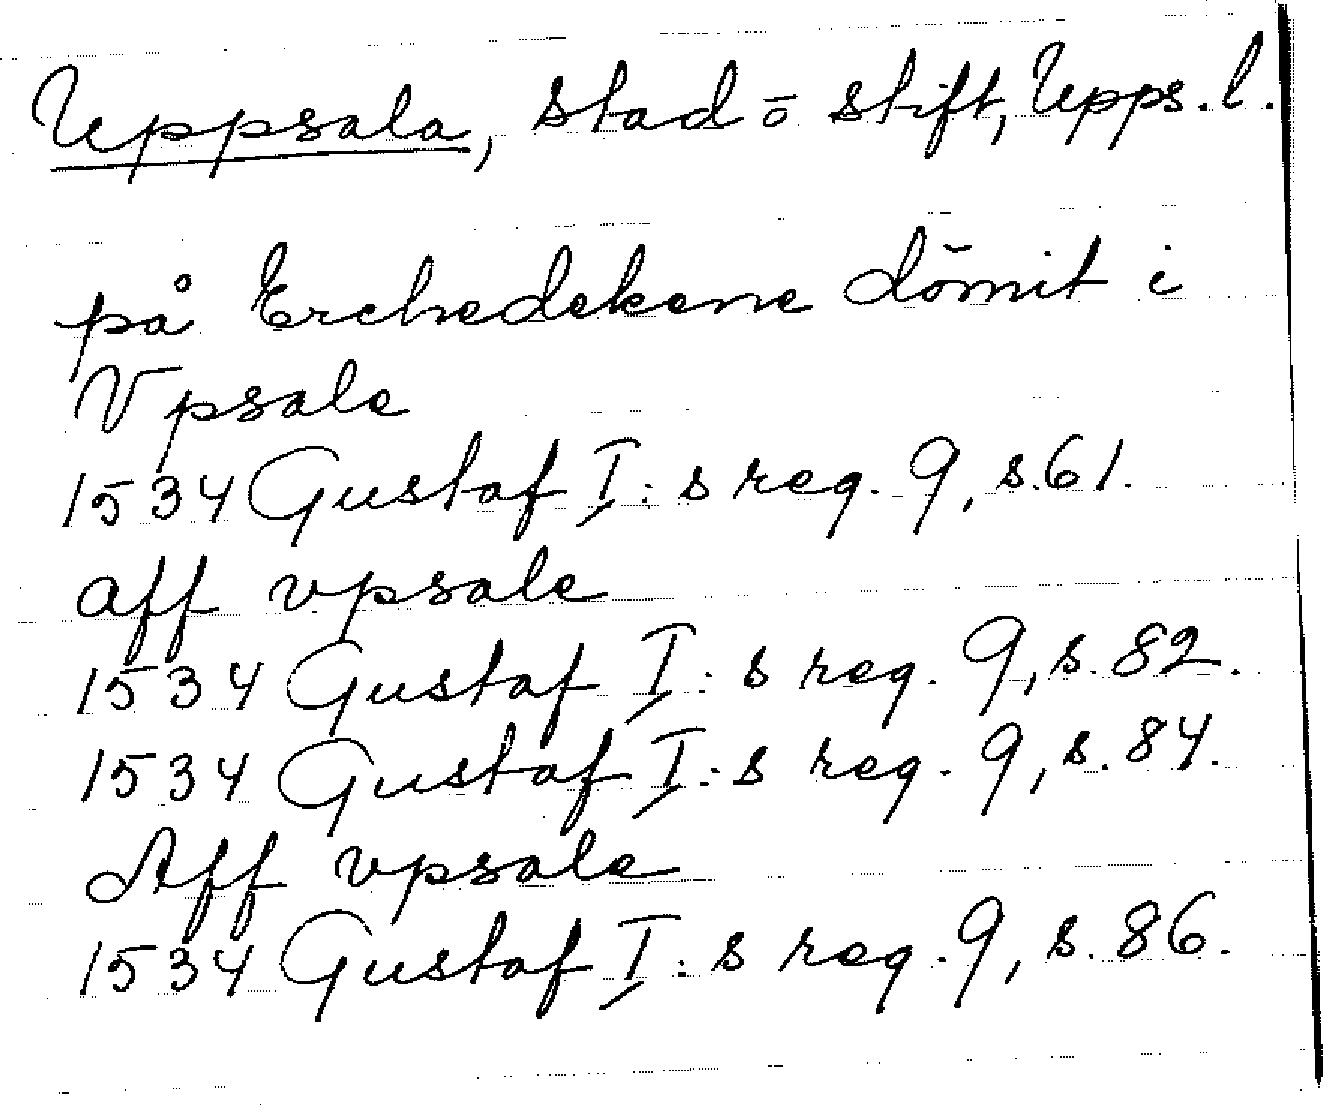 Uppsala, stad o stift, Upps. l.
på Erchedekene dömit i
Vpsale
1534 Gustaf I:s reg. 9, s. 61.
aff vpsale
1534 Gustaf I:s reg. 9, s. 82.
1534 Gustaf I:s reg. 9, s. 84.
Aff vpsale
1534 Gustaf I:s reg. 9, s. 86.